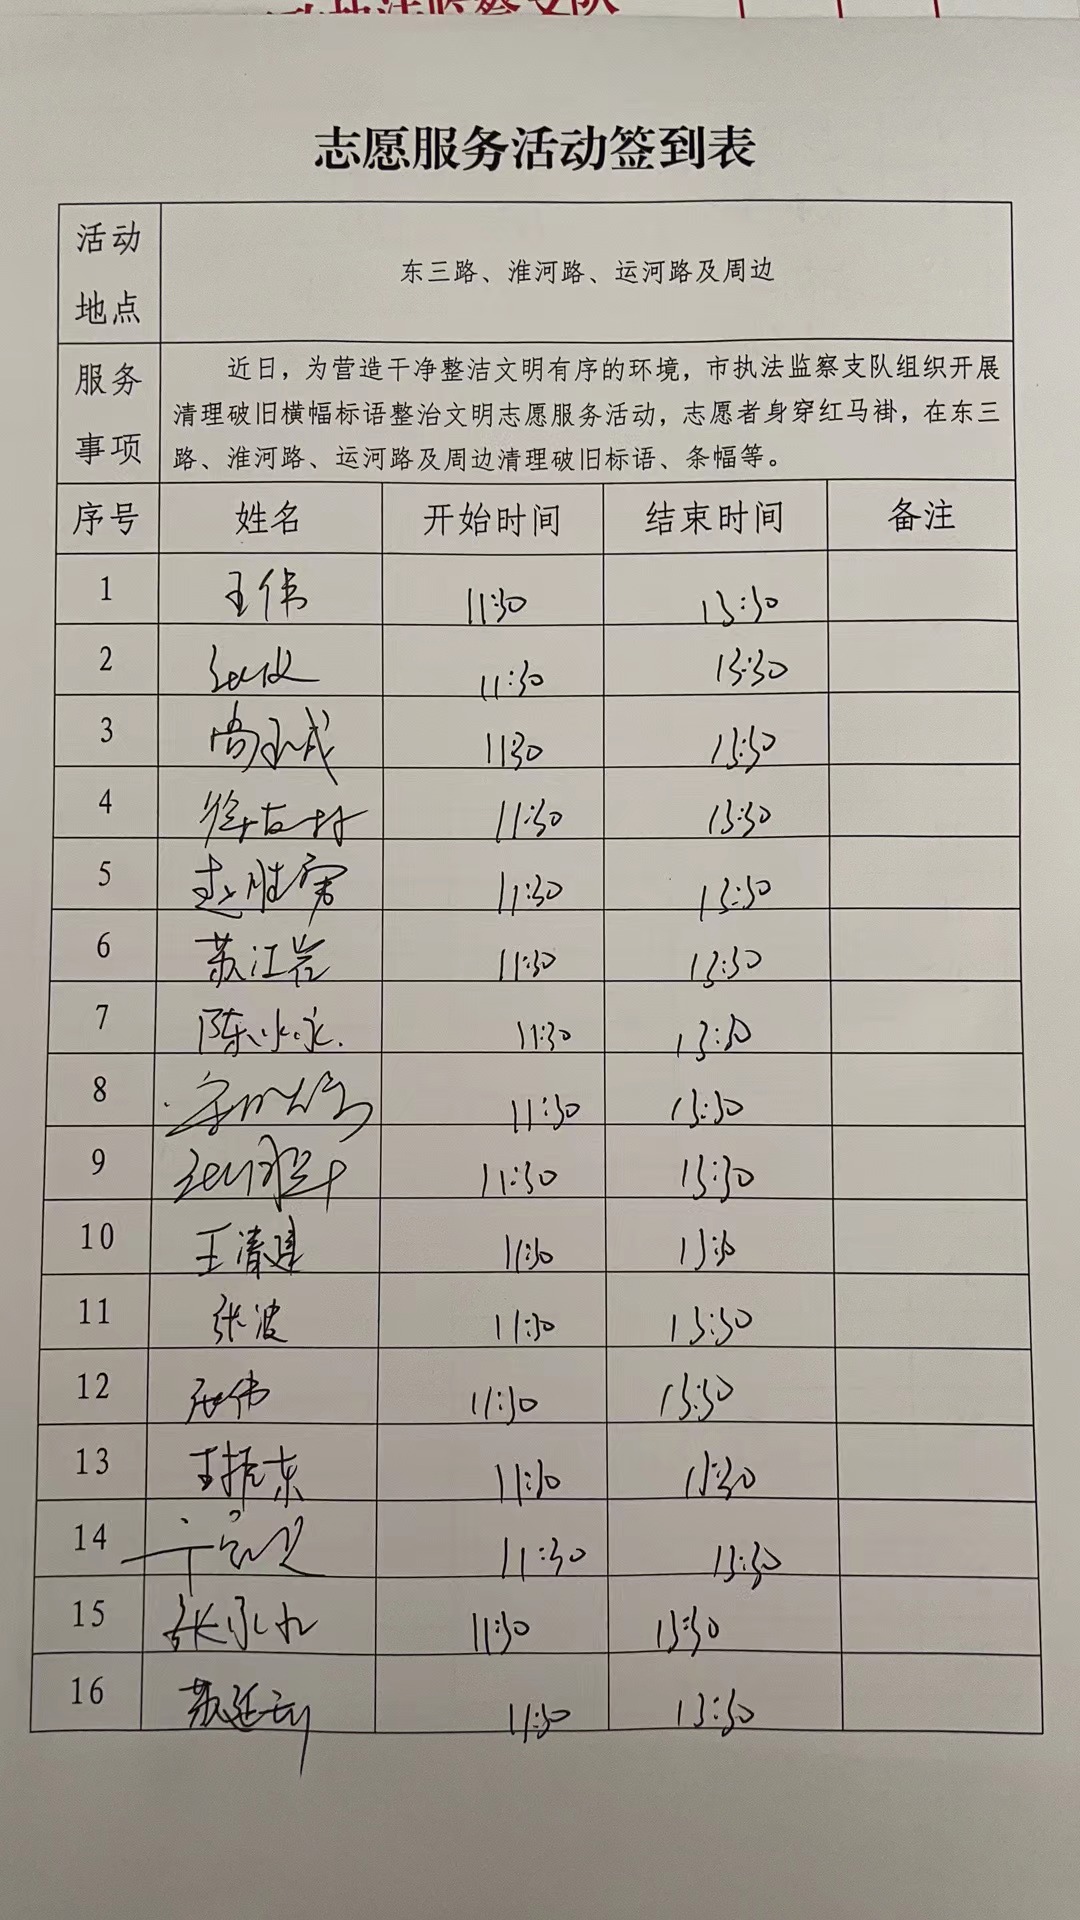 执法监察支队
志愿服务活动签到表
活动地点 东三路、淮河路、运河路及周边
服务事项 近日，为营造干净整洁文明有序的环境，市执法监察支队组织开展
清理破旧横幅标语整治文明志愿服务活动，志愿者身穿红马褂，在东三
路、淮河路、运河路及周边清理破旧标语、条幅等。
序号 姓名 开始时间 结束时间 备注
1 王伟 11:30 13:30
2 11:30 13:30
3 11:30 13:30
4 11:30 13:30
5 赵胜 11:30 13:30
6 苏江岩 11:30 13:30
7 陈冰冰 11:30 13:30
8 11:30 13:30
9 11:30 13:30
10 王清建 11:30 13:30
11 张波 11:30 13:30
12 伟 11:30 13:30
13 王振东 11:30 13:30
14 11:30 13:30
15 张 11:30 13:30
16 苏延 11:30 13:30